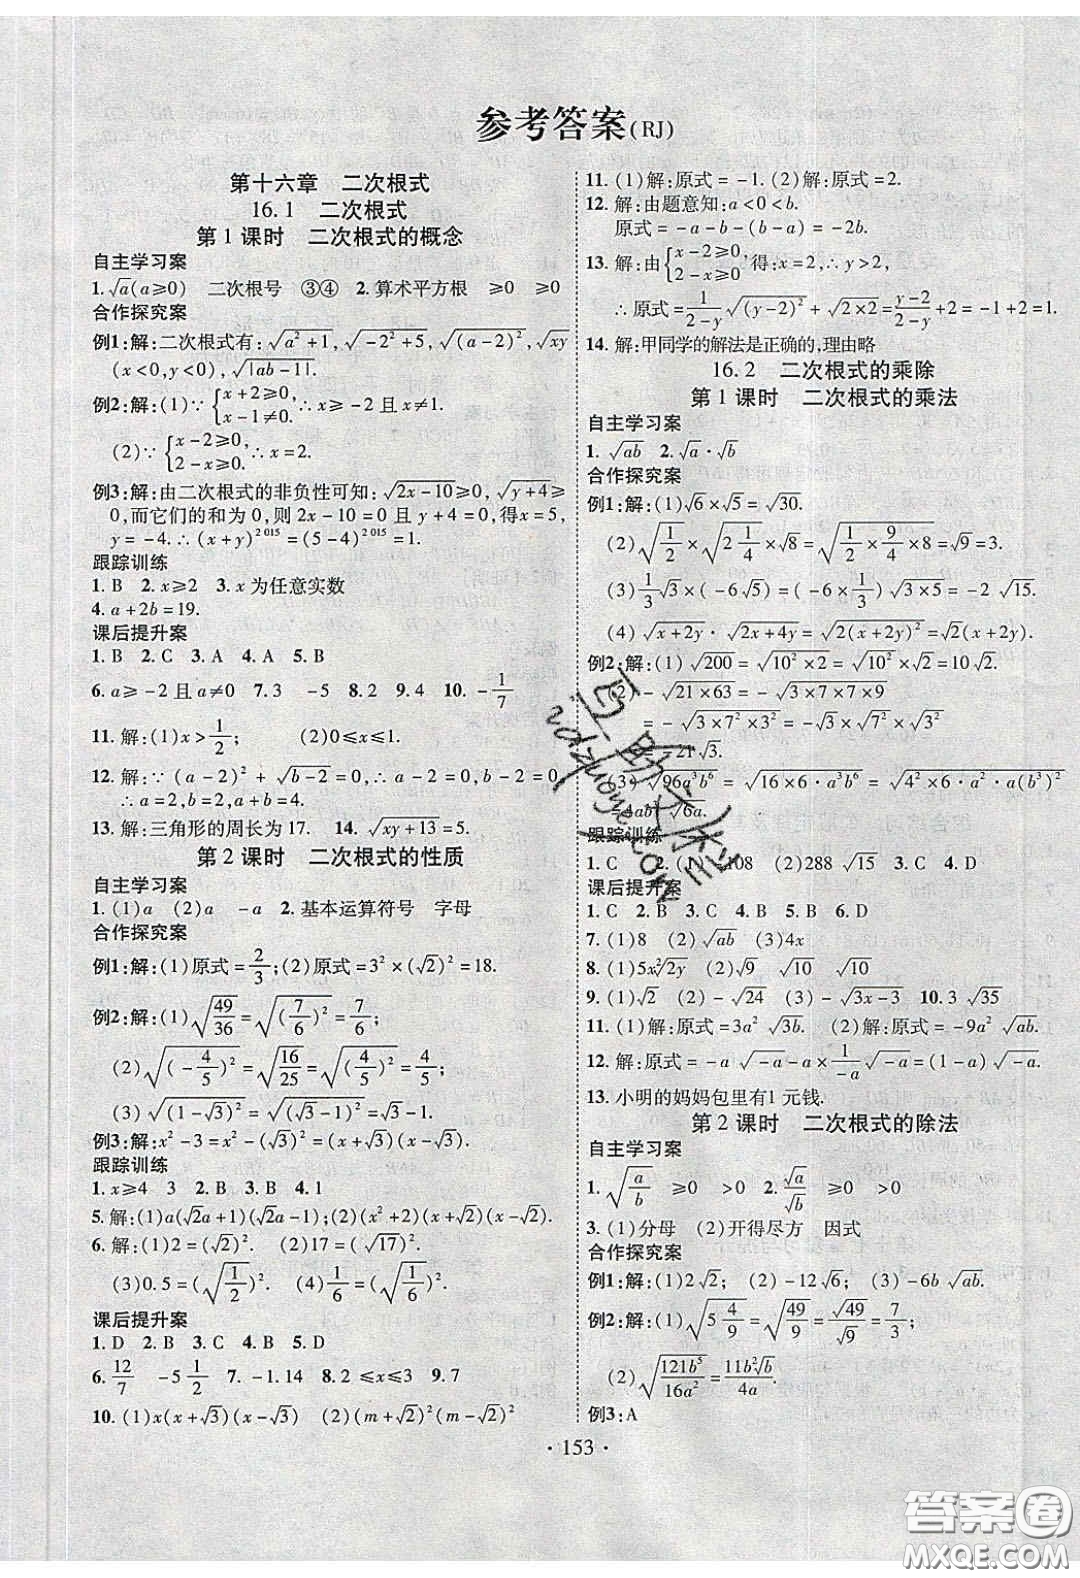 参考答案(RJ)
第十六章 二次根式
16.1 二次根式
第1课时 二次根式的概念
自主学习案
1.√a(a≥0) 二次根号 ③④ 2.算术平方根 ≥0 ≥0
合作探究案
例1:解:二次根式有:√(a²+1),√(-2²+5),√((a-2)²),√(xy)
(x<0,y<0),√(|ab-1|)
例2:解:(1)∵{x+2≥0, x-1≠0. ∴x≥-2且x≠1.
(2)∵{x-2≥0, 2-x≥0. ∴x=2.
例3:解:由二次根式的非负性可知:√(2x-10)≥0,√(y+4)≥
0,而它们的和为0,则2x-10=0且y+4=0,得x=5,
y=-4.∴(x+y)²⁰¹⁵=(5-4)²⁰¹⁵=1.
跟踪训练
1.B 2.x≥2 3.x为任意实数
4.a+2b=19.
课后提升案
1.B 2.C 3.A 4.A 5.B
6.a≥-2且a≠0 7.3 -5 8.2 9.4 10.-1/7
11.解:(1)x>1/2; (2)0≤x≤1.
12.解:∵(a-2)²+√(b-2)=0,∴a-2=0,b-2=0,
∴a=2,b=2,∴a+b=4.
13.解:三角形的周长为17. 14.√(xy+13)=5.
第2课时 二次根式的性质
自主学习案
1.(1)a (2)a -a 2.基本运算符号 字母
合作探究案
例1:解:(1)原式=2/3;(2)原式=3²×(√2)²=18.
例2:解:(1)√(49/36)=√((7/6)²)=7/6;
(2)√((-4/5)²)=√(16/25)=√((4/5)²)=4/5;
(3)√((1-√3)²)=√((√3-1)²)=√3-1.
例3:解:x²-3=x²-(√3)²=(x+√3)(x-√3)
跟踪训练
1.x≥4 3 2.B 3.B 4.1
5.解:(1)a(√2a+1)(√2a-1);(2)(x²+2)(x+√2)(x-√2).
6.解:(1)2=(√2)². (2)17=(√17)².
(3)0.5=(√(1/2))². (4)1/6=(√(1/6))².
课后提升案
1.D 2.B 3.C 4.B 5.D
6.12/7 -5 1/2 7.-1.14 8.2≤x≤3 9.7
10.(1)x(x+√3)(x-√3) (2)(m+√2)²(m-√2)²
11.(1)解:原式=-1.(2)解:原式=2.
12.解:由题意知:a<0<b.
原式=-a-b-(b-a)=-2b.
13.解:由{x-2≥0, 2-x≥0 得:x=2,∴y>2,
∴原式=1/(2-y)√((y-2)²)+√(2×2)=(y-2)/(2-y)+2=-1+2=1.
14.解:甲同学的解法是正确的,理由略
16.2 二次根式的乘除
第1课时 二次根式的乘法
自主学习案
1.√(ab) 2.√a·√b
合作探究案
例1:解:(1)√6×√5=√30.
(2)√(1/2)×√(2 1/4)×√8=√(1/2×9/4×8)=√9=3.
(3)1/3√3×(-6√5)=(-6×1/3)√(3×5)=-2√15.
(4)√(x+2y)·√(2x+4y)=√(2(x+2y)²)=√2(x+2y)
例2:解:(1)√200=√(10²×2)=√(10²)×√2=10√2.
(2)-√(21×63)=-√(3×7×7×9)
=-√(3×7²×3²)=-√3×√(7²)×√(3²)
=-21√3.
(3)√(96a³b⁶)=√(16×6·a³b⁶)=√(4²×6·a²·a(b³)²
=4ab³√(6a).
跟踪训练
1.C 2.(1)-108 (2)288√15 3.C 4.D
课后提升案
1.C 2.B 3.C 4.B 5.B 6.D
7.(1)8 (2)√(ab) (3)4x
8.(1)5x²√(2y) (2)√9 √10 √10
9.(1)√2 (2)-√2 (3)-√(3x-3) 10.3√35
11.(1)解:原式=3a²√(3b). (2)解:原式=-9a²√(ab).
12.解:原式=-a√(-a)-a×1/(-a)√(-a)=(1-a)√(-a).
13.小明的妈妈包里有1元钱.
第2课时 二次根式的除法
自主学习案
1.√(a/b) ≥0 >0 2.√a/√b ≥0 >0
3.(1)分母 (2)开得尽方 因式
合作探究案
例1:解:(1)2√2; (2)-12√6; (3)-6b√(ab).
例2:解:(1)√(5 4/9)=√(49/9)=√49/√9=7/3;
(2)√(121b⁵/16a²)=11b²√b/4a.
例3:A
·153·
答案圈
MXQE.COM